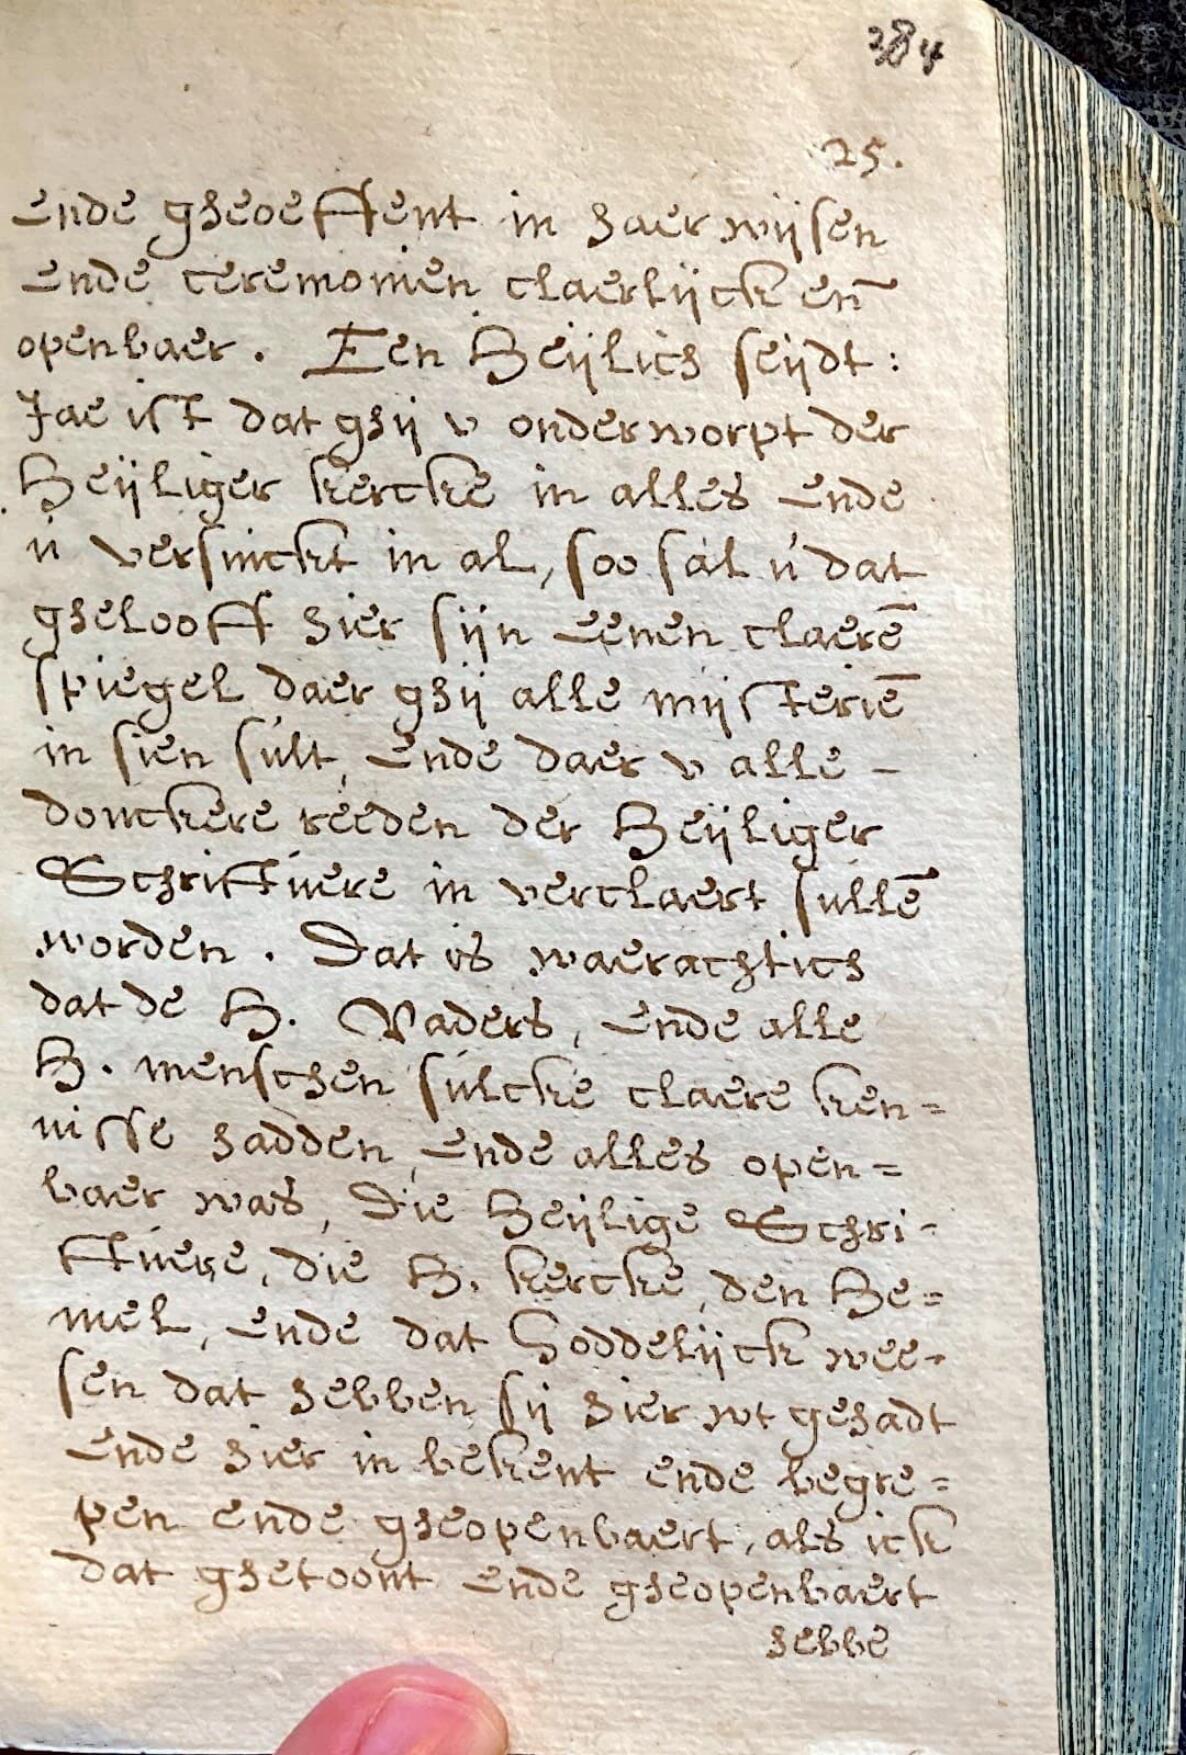 284
25.
ende gheoeffent in haer wijsen
ende ceremonien claerlijck en̄
openbaer. Een Heijlich seijdt:
Jae ist dat ghij v onderworpt der
Heijliger kercke in alles ende
ú versinckt in al, soo sal ú dat
gheloofft hier sijn eenen claerē
spiegel daer ghij alle mijsteriē
in sien súlt, ende daer v alle -
donckere reeden der Heijliger
Schrifftúere in verclaert súllē
worden. Dat is waerachtich
dat de H. Vaders, ende alle
H. menschen súlcke claere ken=
nisse hadden, ende alles open=
baer was, Die Heijlige Schri-
fftúere, die H. kercke, den He=
mel, ende dat Goddelijck wee-
sen dat hebben sij hier wt gehadt
ende hier in bekent ende begre=
pen ende gheopenbaert, als ick
dat ghetoont ende gheopenbaert
hebbe